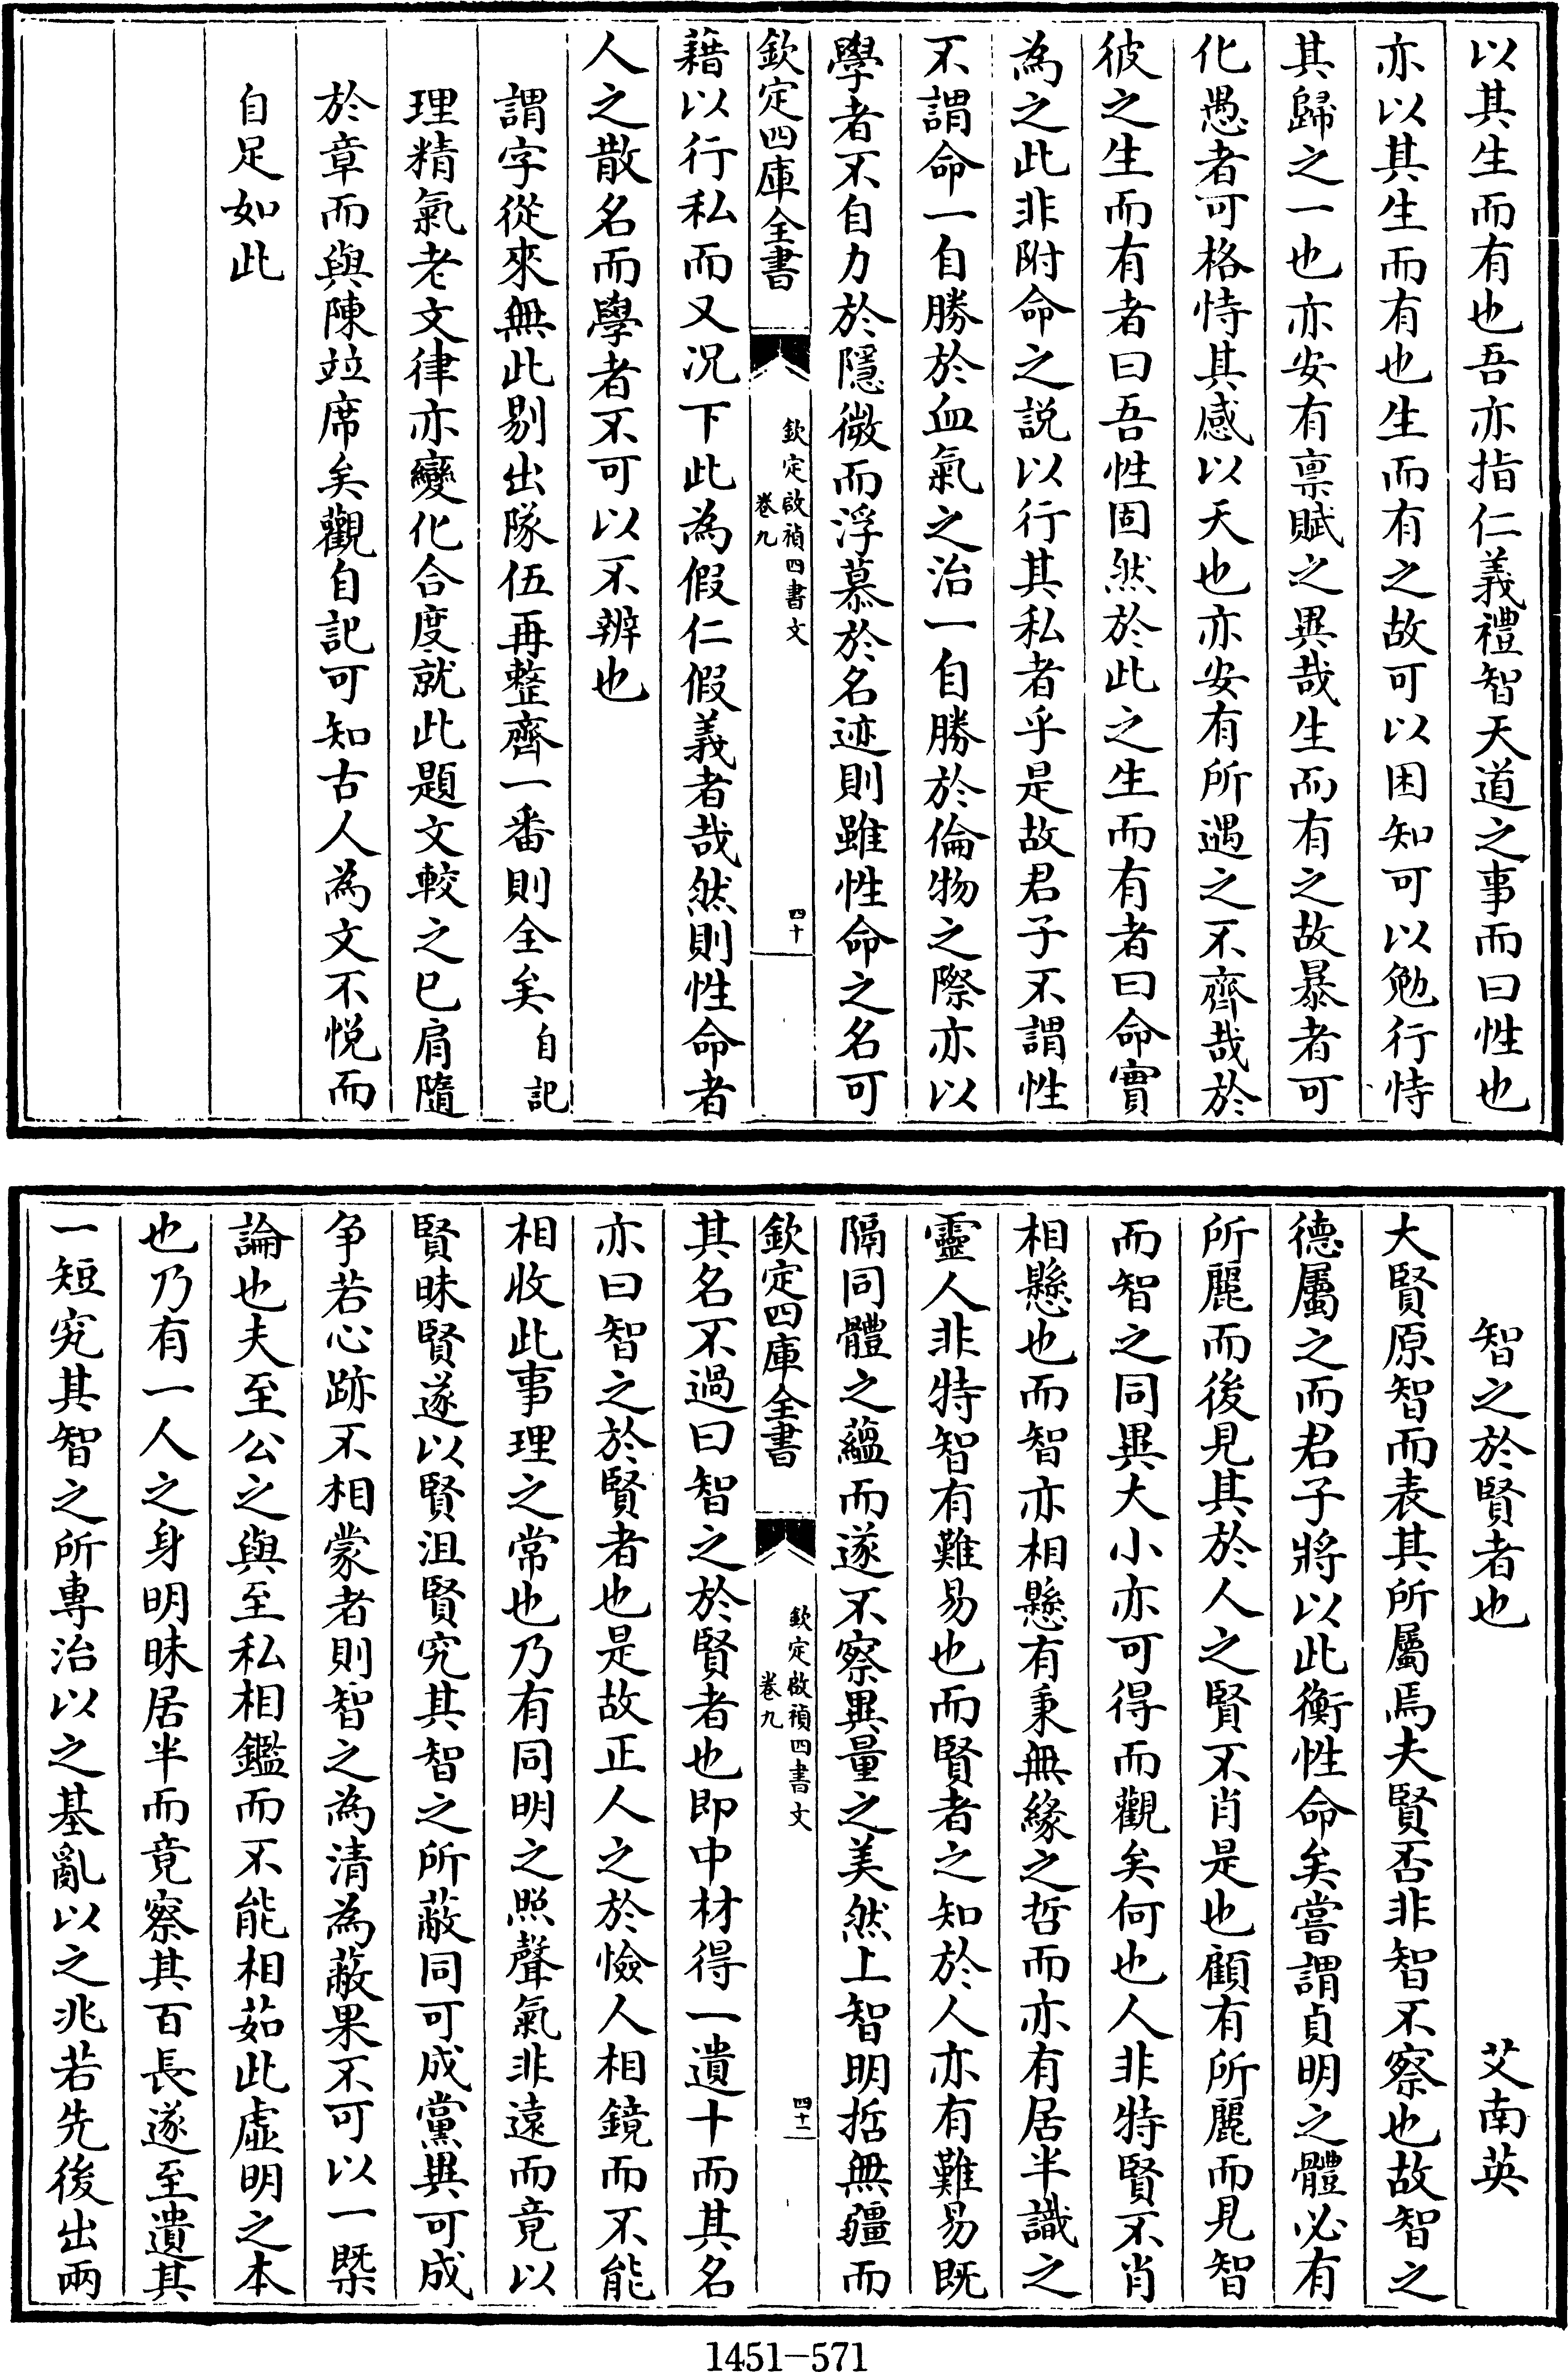 以其生而有也吾亦指仁義禮智天道之事而曰性也
亦以其生而有也生而有之故可以困知可以勉行恃
其歸之一也亦安有禀賦之異哉生而有之故暴者可
化愚者可格恃其感以天也亦安有所遇之不齊哉於
彼之生而有者曰吾性固然於此之生而有者曰命實
為之此非附命之説以行其私者乎是故君子不謂性
不謂命一自勝於血氣之治一自勝於倫物之際亦以
學者不自力於隱微而浮慕於名迹則雖性命之名可
欽定四庫全書
欽定啟禎四書文
卷九
四十
藉以行私而又况下此為假仁假義者哉然則性命者
人之散名而學者不可以不辨也
謂字從來無此剔出隊伍再整齊一番則全矣自記
理精氣老文律亦變化合度就此題文較之已肩隨
於章而與陳竝席矣觀自記可知古人為文不悦而
自足如此
智之於賢者也
艾南英
大賢原智而表其所屬焉夫賢否非智不察也故智之
德屬之而君子將以此衡性命矣嘗謂貞明之體必有
所麗而後見其於人之賢不肖是也顧有所麗而見智
而智之同異大小亦可得而觀矣何也人非特賢不肖
相懸也而智亦相懸有秉無緣之哲而亦有居半識之
靈人非特智有難易也而賢者之知於人亦有難易既
隔同體之蘊而遂不察異量之美然上智明括無疆而
欽定四庫全書
欽定啟禎四書文
卷九
四十二
其名不過曰智之於賢者也即中材得一遺十而其名
亦曰智之於賢者也是故正人之於憸人相鏡而不能
相收此事理之常也乃有同明之照聲氣非遠而竟以
賢昧賢遂以賢沮賢究其智之所蔽同可成黨異可成
争若心跡不相蒙者則智之為清為蔽果不可以一槩
論也夫至公之與至私相鑑而不能相茹此虛明之本
也乃有一人之身明昧居半而竟察其百長遂至遺其
一短究其智之所專治以之基亂以之兆若先後出兩
1451-571